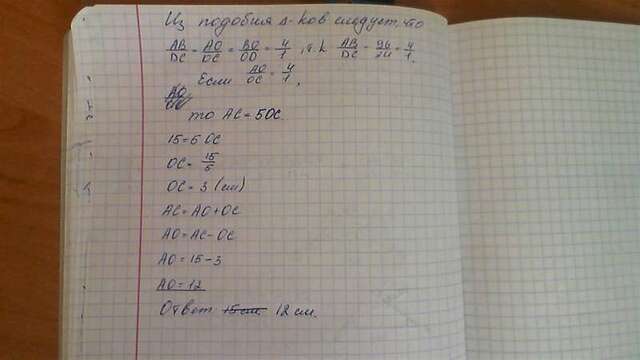 Из подобия Δ-ков следует, что
AB/DC = AO/OC = BO/OD = 4/1, т.к. AB/DC = 96/24 = 4/1.
Если AO/OC = 4/1,
то AC = 5OC.
15 = 5OC
OC = 15/5
OC = 3 (см)
AC = AO + OC
AO = AC - OC
AO = 15 - 3
AO = 12
Ответ 15 см 12 см.